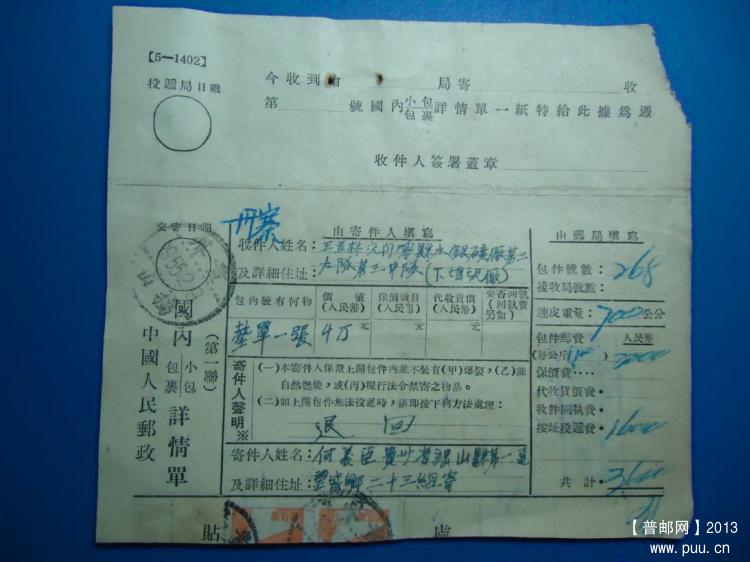 【5—1402】
投遞局日戳
今收到由 局寄 收
第 號國內小包包裹詳情單一紙特給此據爲憑
收件人簽署蓋章
交寄日期
丹寨
由寄件人填寫
收件人姓名：
及詳細住址：
大隊第三中隊
包內裝有何物
價值(人民幣)
保價數目(人民幣)
代收貨價(人民幣)
墊單一張 4万元 元 元
寄件人聲明※
(一)本寄件人保證上開包件內並不裝有(甲)爆裂，(乙)能
自然燃燒，或(丙)現行法令禁寄之物品。
(二)如上開包件無法投遞時，請即按下列方法處理：
退回
寄件人姓名：何義臣貴州省 山縣第一區
及詳細住址：望城鄉二十三組寄
由郵局填寫
包件號數：268
接收局號數：
連皮重量：700公分
包件郵費 人民幣
(每公斤 2000
保價費：
代收貨價費：
收件回執費：
按址投遞費：1600
共計：3600
(第一聯)
國內小包包裹詳情單
中國人民郵政
貼 處
【普邮网】2013
www.puu.cn